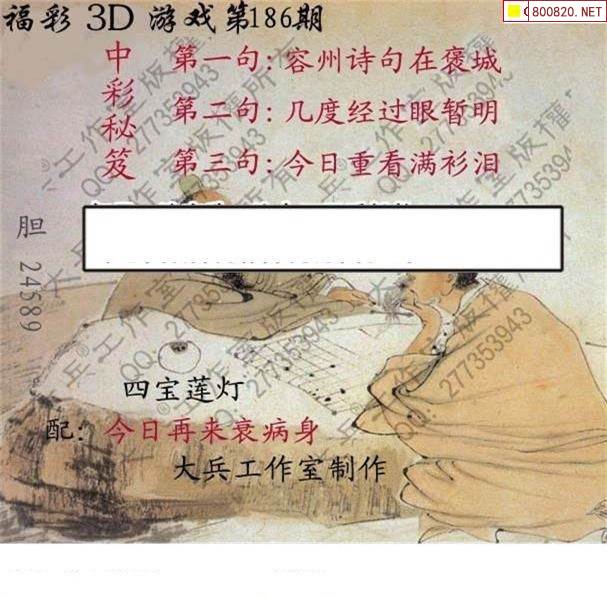 C800820.NET
福彩 3D 游戏第186期
中彩秘笈
第一句:容州诗句在褒城
第二句:几度经过眼暂明
第三句:今日重看满衫泪
胆 24589
四宝莲灯
配:今日再来衰病身
大兵工作室制作
大兵®工作室版权所有
QQ:277353943